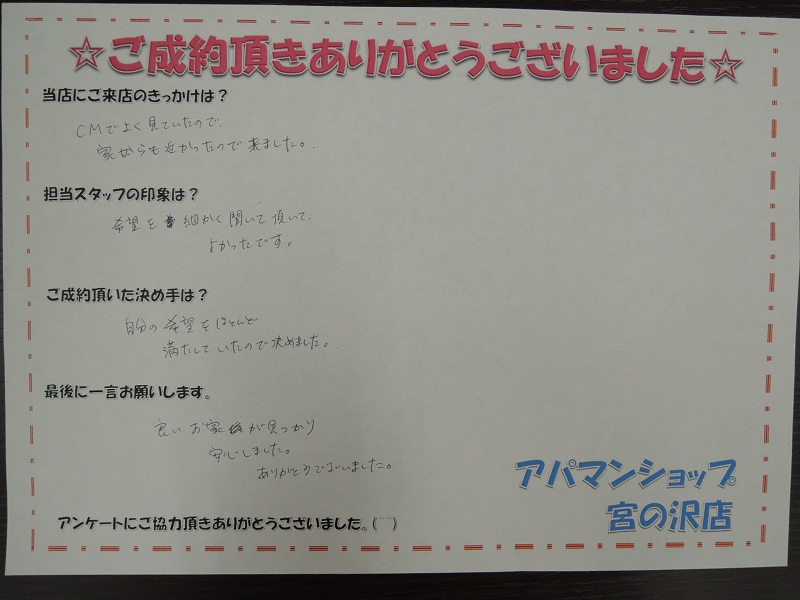 ☆ご成約頂きありがとうございました☆
当店にご来店のきっかけは？
CMでよく見ていたので、
家からも近かったので来ました。
担当スタッフの印象は？
希望を細かく聞いて頂いて、
よかったです。
ご成約頂いた決め手は？
自分の希望をほとんど
満たしていたので決めました。
最後に一言お願いします。
良いお家が見つかり
安心しました。
ありがとうございました。
アパマンショップ
宮の沢店
アンケートにご協力頂きありがとうございました。(^^)